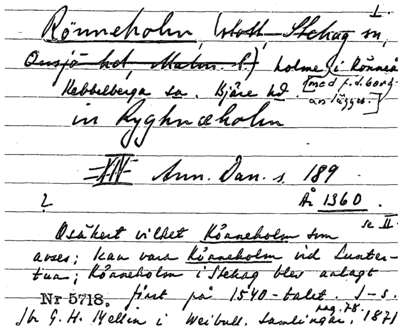 1.
Rönneholm, (slott Stehag sn,
Onsjö hd, Malm. l.) holme i Rönneå
Hebbelberga sn. Bjäre hd. [med f.d. borg-
anlägg.]
in Ryghnæholm
XIV Ann. Dan. s. 189
? År 1360. se II.
Osäkert vilket Rönneholm som
avses; kan vara Rönneholm vid Lunter-
tun; Rönneholm i Stehag blev anlagt
Nr 5718. först på 1540-talet. J-s.
Jbr G. H. Mellin i Weibull. Samlingar. 1871
pag. 78.